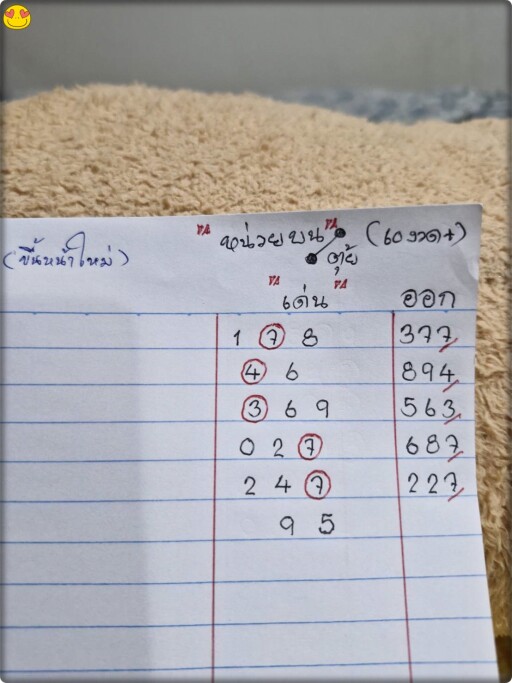 หน่วยบน (60 งวด+)
(ขึ้นหน้าใหม่) ตุ้ย
เด่น ออก
1 7 8 377
4 6 894
3 6 9 563
0 2 7 687
2 4 7 227
9 5